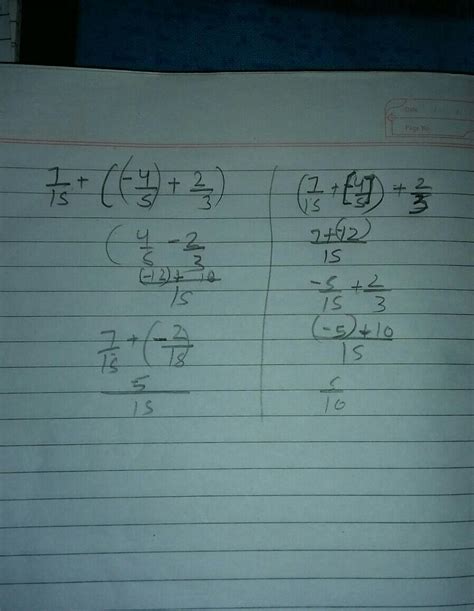 Date
Page No.
7/15 + ((-4/5) + 2/3)
( 4/5 - 2/3
(-12) + 10/15
7/15 + (-2/15
5/15
(7/15 + [-4/5]) + 2/3
7+(-12)/15
-5/15 + 2/3
(-5)+10/15
5/10